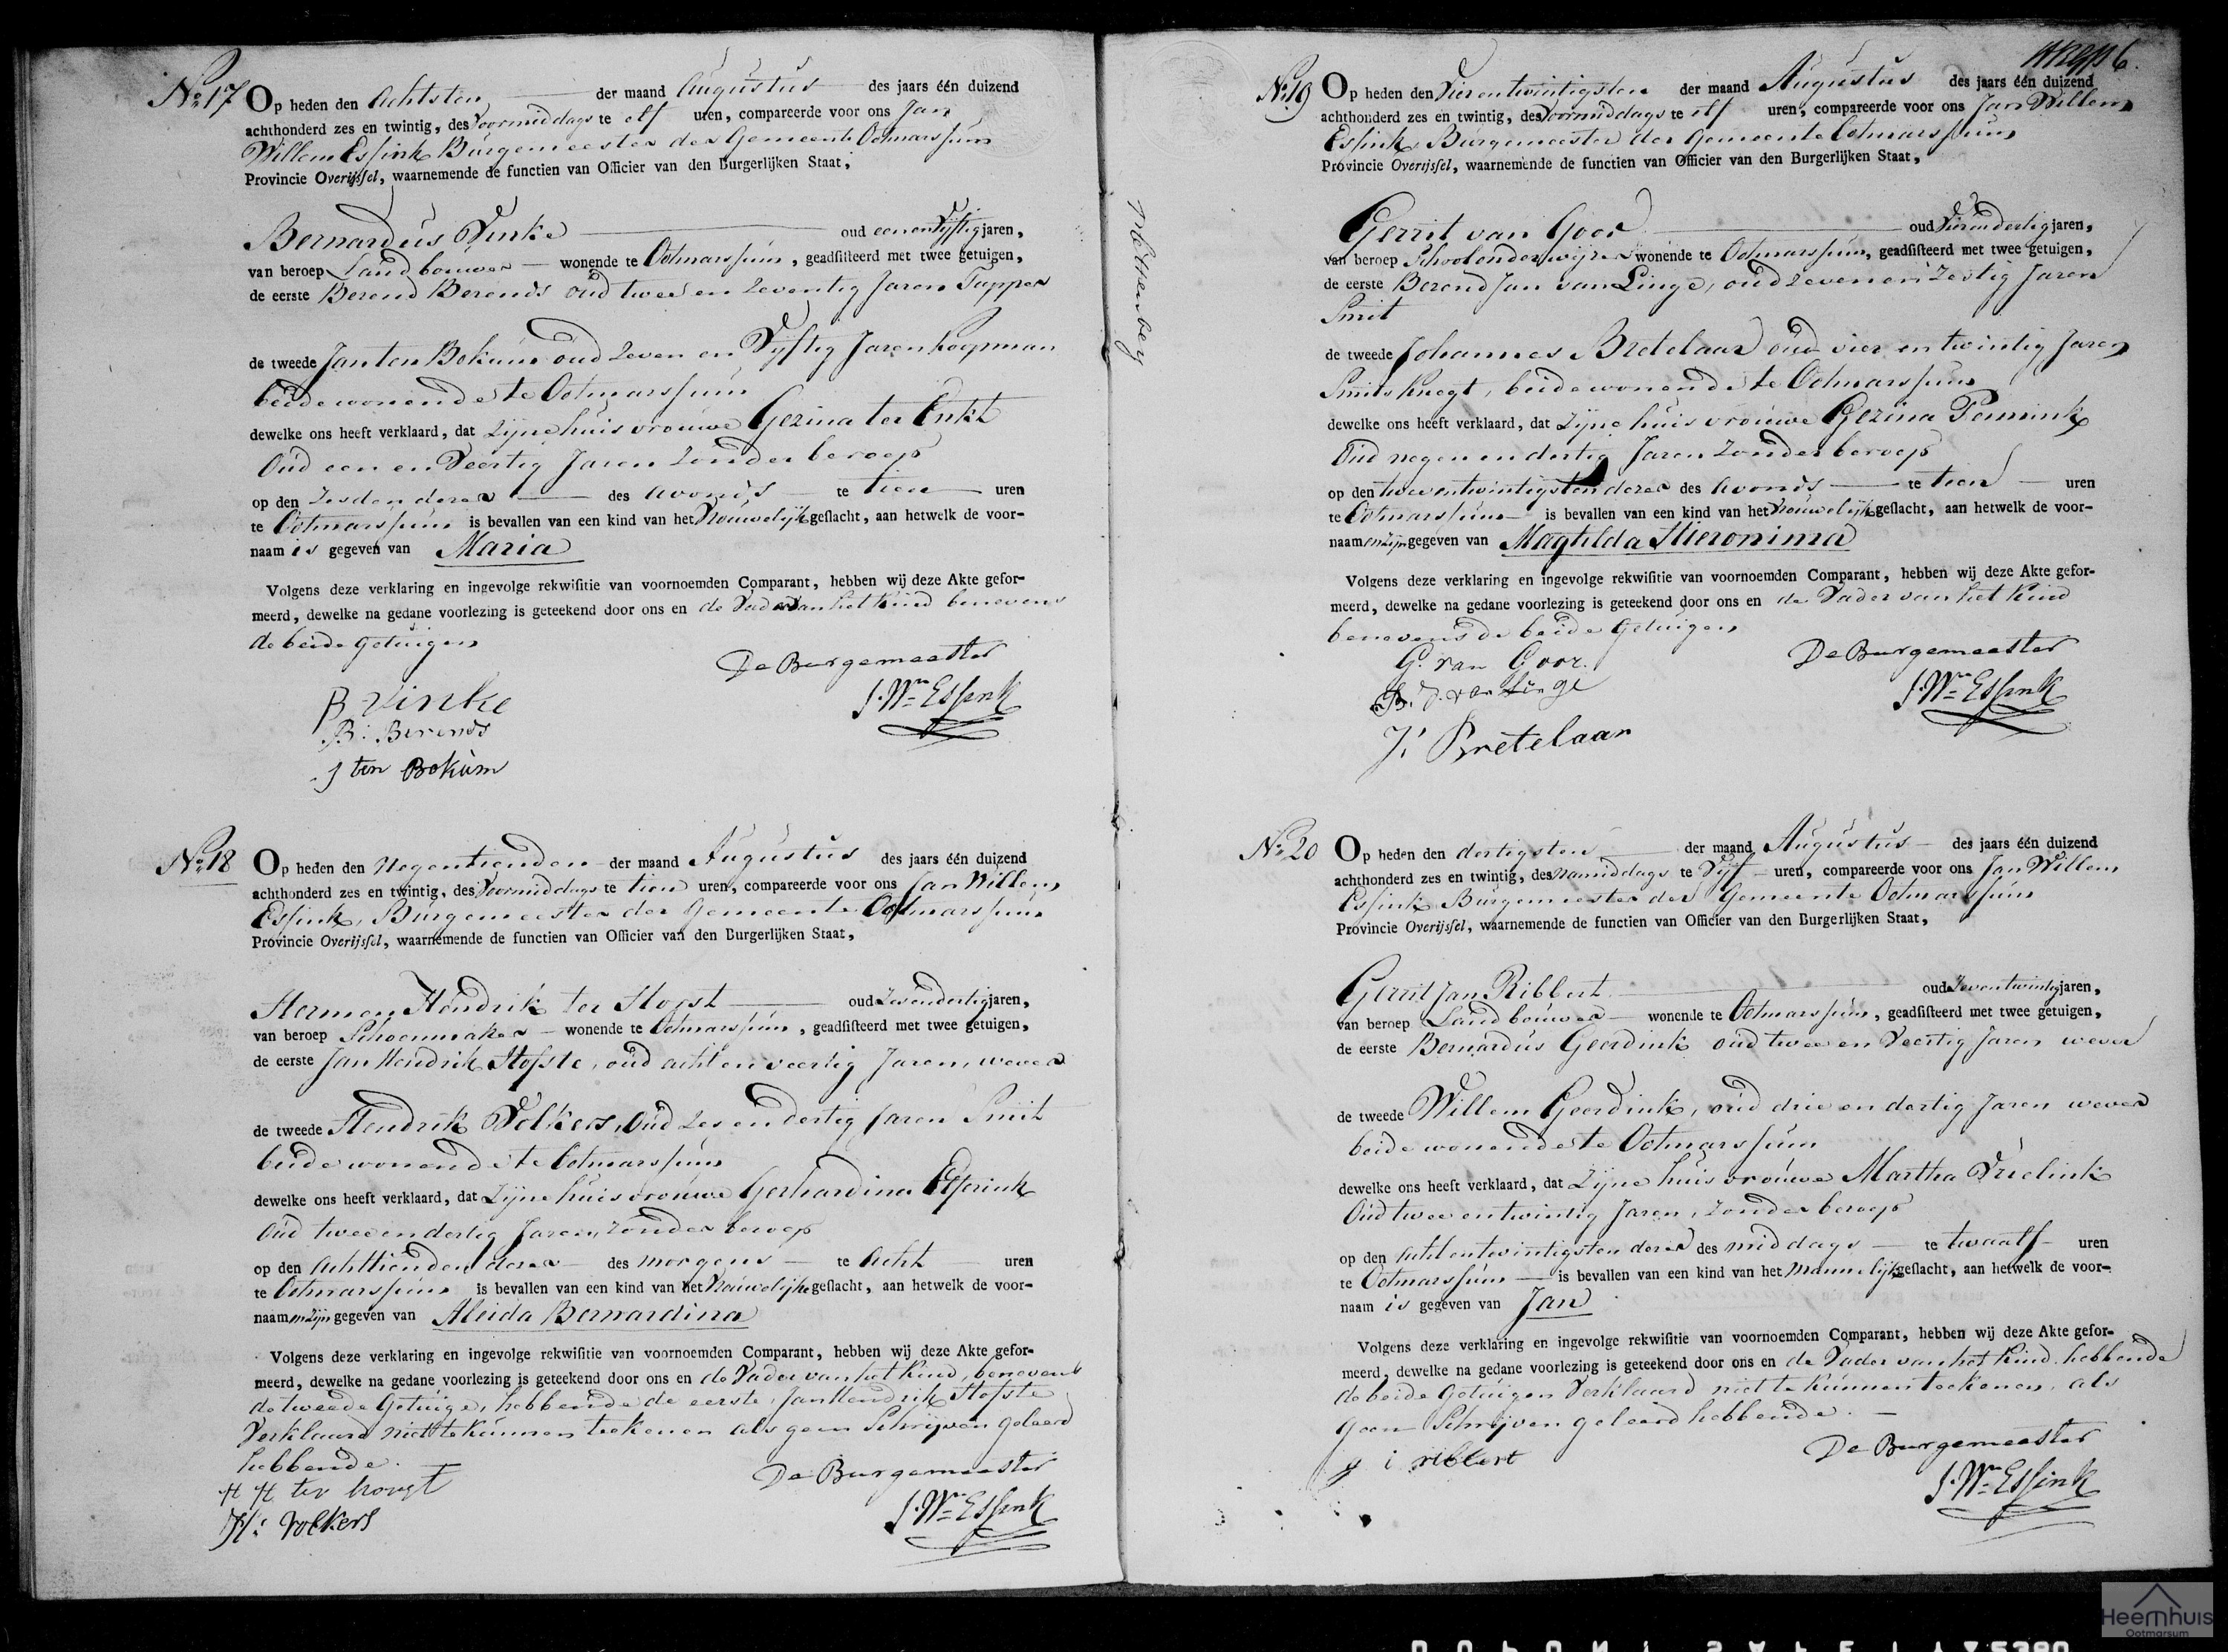 No. 17 Op heden den Achtsten der maand Augustus des jaars één duizend
achthonderd zes en twintig, des Voormiddags te elf uren, compareerde voor ons Jan
Willem Essink Burgemeester der Gemeente Ootmarssum
Provincie Overijssel, waarnemende de functien van Officier van den Burgerlijken Staat,
Bernardus Vinke oud een en Vyftig jaren,
van beroep Landbouwer wonende te Ootmarssum, geadsisteerd met twee getuigen,
de eerste Berend Berends oud twee en Zeventig Jaren Tapper
de tweede Jan ten Bokum oud Zeven en Vyftig Jaren Koopman
beide wonende te Ootmarssum
dewelke ons heeft verklaard, dat Zijne huisvrouwe Gezina ter Enkt
Oud een en Veertig Jaren Zonder beroep
op den Zesden dezer des Avonds te tien uren
te Ootmarssum is bevallen van een kind van het Vrouwelijk geslacht, aan hetwelk de voor-
naam is gegeven van Maria
Volgens deze verklaring en ingevolge rekwisitie van voornoemden Comparant, hebben wij deze Akte gefor-
meerd, dewelke na gedane voorlezing is geteekend door ons en de Vader van het Kind benevens
de beide getuigen
De Burgemeester
J. Wm Essink
B Vinke
B: Berends
J ten Bokum
No. 18 Op heden den Negentienden der maand Augustus des jaars één duizend
achthonderd zes en twintig, des Voormiddags te tien uren, compareerde voor ons Jan Willem
Essink, Burgemeester der Gemeente Ootmarssum
Provincie Overijssel, waarnemende de functien van Officier van den Burgerlijken Staat,
Hermen Hendrik ter Horst oud Zesendertig jaren,
van beroep Schoenmaker wonende te Ootmarssum, geadsisteerd met twee getuigen,
de eerste Jan Hendrik Hofste, oud acht en veertig Jaren, wever
de tweede Hendrik Volkers, Oud Zes en dertig Jaren Smit
beide wonende te Ootmarssum
dewelke ons heeft verklaard, dat Zijne huisvrouwe Gerhardina
Oud twee en dertig Jaren, Zonder beroep
op den Achttienden dezer des morgens te Acht uren
te Ootmarssum is bevallen van een kind van het Vrouwelijke geslacht, aan hetwelk de voor-
naamen Zijn gegeven van Aleida Bernardina
Volgens deze verklaring en ingevolge rekwisitie van voornoemden Comparant, hebben wij deze Akte gefor-
meerd, dewelke na gedane voorlezing is geteekend door ons en de Vader van het Kind, benevens
de tweede Getuige, hebbende de eerste Jan Hendrik Hofste
Verklaard niet te kunnen teekenen als geen Schrijven geleerd
hebbende.
De Burgemeester
J. Wm Essink
H H ter horst
H: Volkers
Moltenberg
6.
No. 19 Op heden den Vierentwintigsten der maand Augustus des jaars één duizend
achthonderd zes en twintig, des Voormiddags te elf uren, compareerde voor ons Jan Willem
Essink, Burgemeester der Gemeente Ootmarssum
Provincie Overijssel, waarnemende de functien van Officier van den Burgerlijken Staat,
Gerrit van Goor oud Vierendertig jaren,
van beroep Schoolonderwijzer wonende te Ootmarssum, geadsisteerd met twee getuigen,
de eerste Berend Jan van Linge, oud Zeven en Zestig Jaren
Smit
de tweede Johannes Bretelaar oud vier en twintig Jaren
Smits Knegt, beide wonende te Ootmarssum
dewelke ons heeft verklaard, dat Zijne huisvrouwe Gezina Pennink
Oud negen en dertig Jaren Zonder beroep
op den tweeentwintigsten dezer des Avonds te tien uren
te Ootmarssum is bevallen van een kind van het Vrouwelijk geslacht, aan hetwelk de voor-
naamen Zijn gegeven van Magtilda Hieronima
Volgens deze verklaring en ingevolge rekwisitie van voornoemden Comparant, hebben wij deze Akte gefor-
meerd, dewelke na gedane voorlezing is geteekend door ons en de Vader van het Kind
benevens de beide Getuigen
De Burgemeester
J. Wm Essink
G. van Goor.
B. J. van Linge
J. Bretelaar
No. 20 Op heden den dertigsten der maand Augustus des jaars één duizend
achthonderd zes en twintig, des namiddags te Vyf uren, compareerde voor ons Jan Willem
Essink Burgemeester der Gemeente Ootmarssum
Provincie Overijssel, waarnemende de functien van Officier van den Burgerlijken Staat,
Gerrit Jan Ribbert oud Zeventwintig jaren,
van beroep Landbouwer wonende te Ootmarssum, geadsisteerd met twee getuigen,
de eerste Bernardus Geerdink oud twee en Veertig Jaren wever
de tweede Willem Geerdink, oud drie en dertig Jaren wever
beide wonende te Ootmarssum
dewelke ons heeft verklaard, dat Zijne huisvrouwe Martha Vrielink
Oud twee en twintig Jaren, Zonder beroep
op den Achtentwintigsten dezer des middags te twaalf uren
te Ootmarssum is bevallen van een kind van het Mannelijk geslacht, aan hetwelk de voor-
naam is gegeven van Jan
Volgens deze verklaring en ingevolge rekwisitie van voornoemden Comparant, hebben wij deze Akte gefor-
meerd, dewelke na gedane voorlezing is geteekend door ons en de Vader van het Kind, hebbende
de beide Getuigen Verklaard niet te kunnen teekenen, als
geen Schrijven geleerd hebbende.
De Burgemeester
J. Wm Essink
g i ribbert
Heemhuis
Ootmarsum